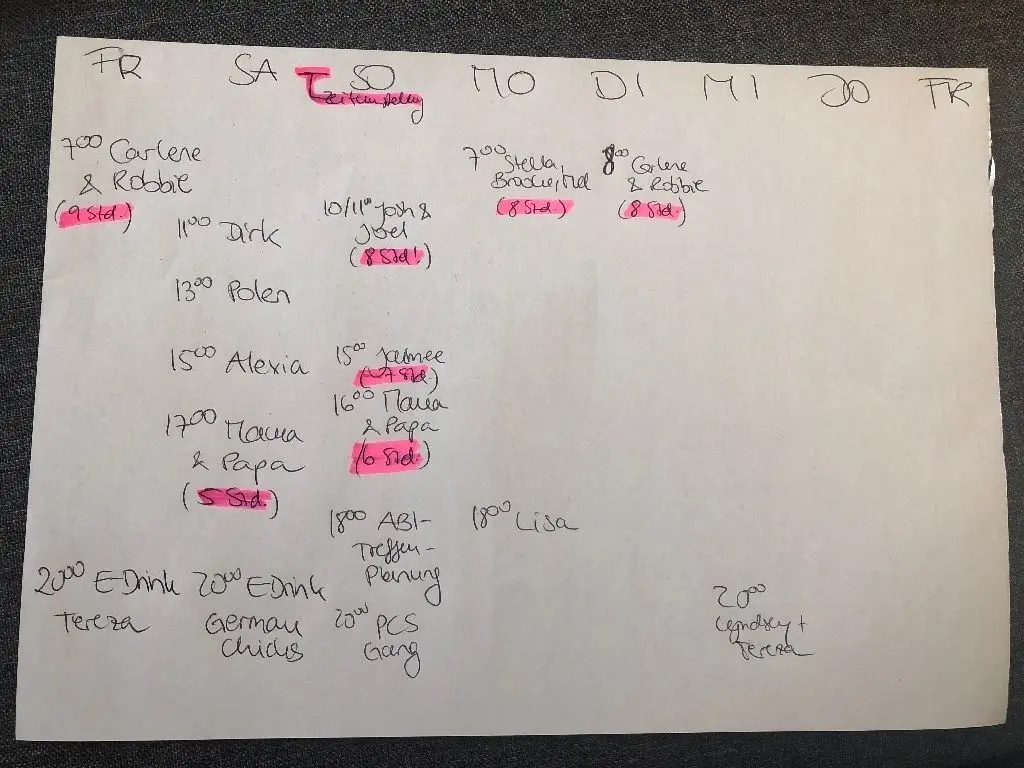 FR SA SO MO DI MI DO FR
Zeitumstellung
7⁰⁰ Carlene
& Robbie
(9 Std.)
11⁰⁰ Dirk
13⁰⁰ Polen
15⁰⁰ Alexia
17⁰⁰ Mama
& Papa
(5 Std.)
20⁰⁰ E-Drink
Tereza
20⁰⁰ E-Drink
German
Chicks
10/11⁰⁰ Josh &
Joel
(8 Std!)
15⁰⁰ Jaimee
(~7 Std.)
16⁰⁰ Mama
& Papa
(6 Std.)
18⁰⁰ ABI-
Treffen-
Planung
20⁰⁰ PCS
Gang
7⁰⁰ Stella,
Mel
(8 Std.)
18⁰⁰ Lisa
8⁰⁰ Carlene
& Robbie
(8 Std.)
20⁰⁰
Lyndsey +
Tereza